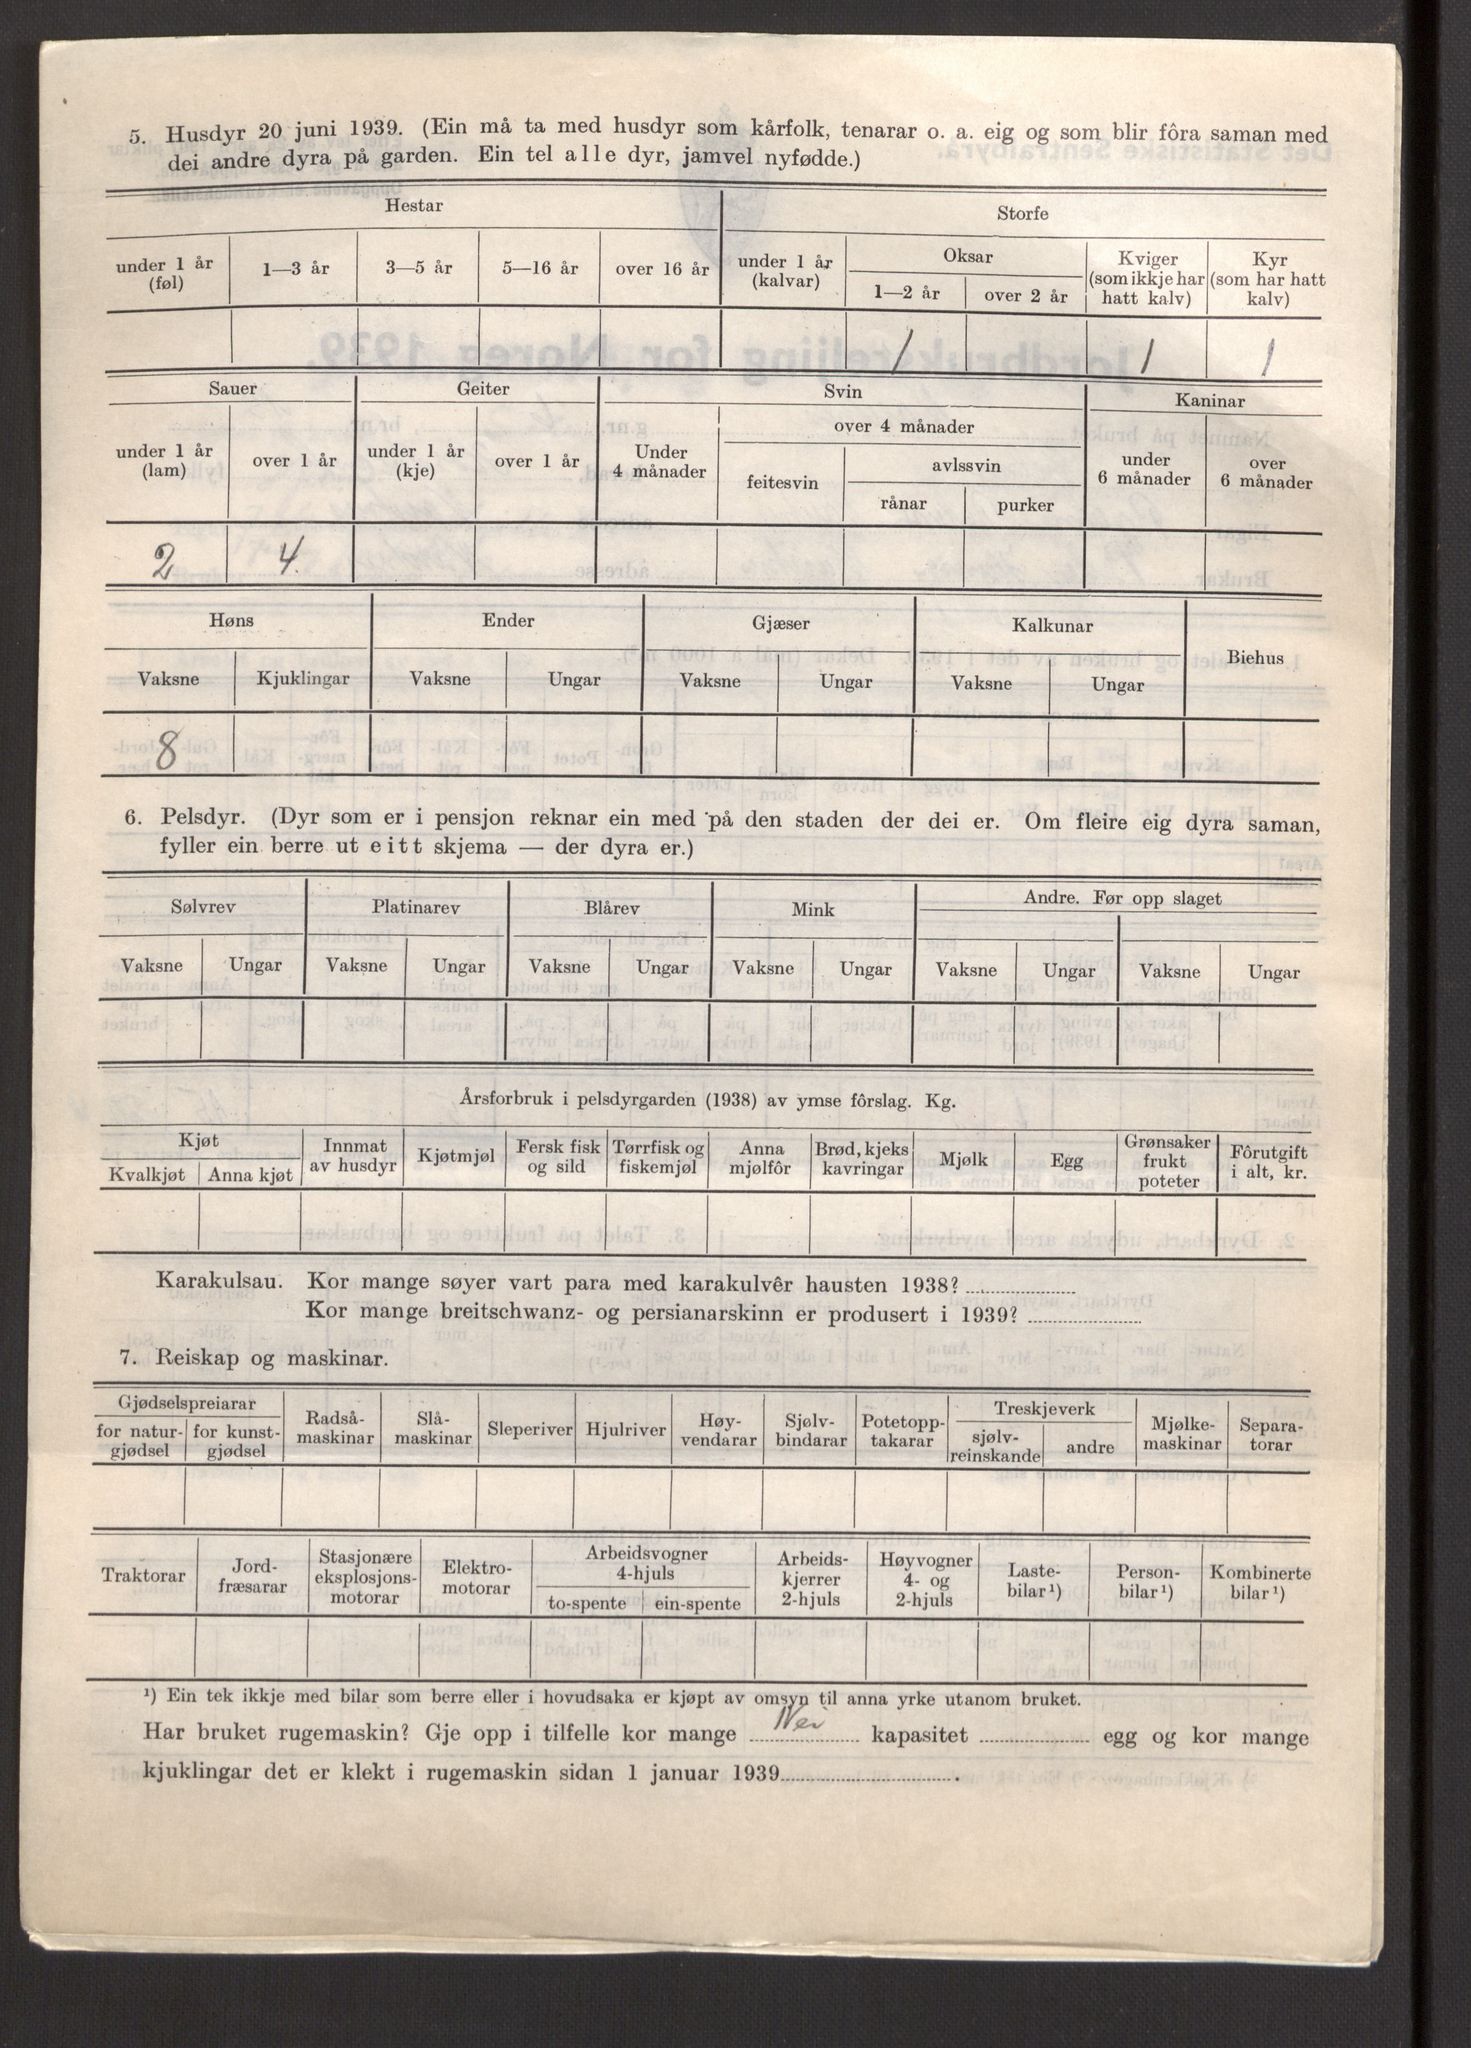 5. Husdyr 20 juni 1939. (Ein må ta med husdyr som kårfolk, tenarar o. a. eig og som blir fôra saman med
dei andre dyra på garden. Ein tel alle dyr, jamvel nyfødde.)
Hestar Storfe
under 1 år (føl) 1—3 år 3—5 år 5—16 år over 16 år under 1 år (kalvar) Oksar 1—2 år over 2 år Kviger (som ikkje har hatt kalv) Kyr (som har hatt kalv)
1 1 1
Sauer Geiter Svin Kaninar
under 1 år (lam) over 1 år under 1 år (kje) over 1 år Under 4 månader over 4 månader feitesvin avlssvin rånar purker under 6 månader over 6 månader
2 4
Høns Ender Gjæser Kalkunar Biehus
Vaksne Kjuklingar Vaksne Ungar Vaksne Ungar Vaksne Ungar
8
6. Pelsdyr. (Dyr som er i pensjon reknar ein med på den staden der dei er. Om fleire eig dyra saman,
fyller ein berre ut eitt skjema — der dyra er.)
Sølvrev Platinarev Blårev Mink Andre. Før opp slaget
Vaksne Ungar Vaksne Ungar Vaksne Ungar Vaksne Ungar Vaksne Ungar Vaksne Ungar
Årsforbruk i pelsdyrgarden (1938) av ymse fôrslag. Kg.
Kjøt Kvalkjøt Anna kjøt Innmat av husdyr Kjøtmjøl Fersk fisk og sild Tørrfisk og fiskemjøl Anna mjølfôr Brød, kjeks kavringar Mjølk Egg Grønsaker frukt poteter Fôrutgift i alt, kr.
Karakulsau. Kor mange søyer vart para med karakulvêr hausten 1938?
Kor mange breitschwanz- og persianarskinn er produsert i 1939?
7. Reiskap og maskinar.
Gjødselspreiarar for natur-gjødsel for kunst-gjødsel Radså-maskinar Slå-maskinar Sleperiver Hjulriver Høy-vendarar Sjølv-bindarar Potetopp-takarar Treskjeverk sjølv-reinskande andre Mjølke-maskinar Separa-torar
Traktorar Jord-fræsarar Stasjonære eksplosjons-motorar Elektro-motorar Arbeidsvogner 4-hjuls to-spente ein-spente Arbeids-kjerrer 2-hjuls Høyvogner 4- og 2-hjuls Laste-bilar¹) Person-bilar¹) Kombinerte bilar¹)
¹) Ein tek ikkje med bilar som berre eller i hovudsaka er kjøpt av omsyn til anna yrke utanom bruket.
Har bruket rugemaskin? Gje opp i tilfelle kor mange Nei kapasitet egg og kor mange
kjuklingar det er klekt i rugemaskin sidan 1 januar 1939 .